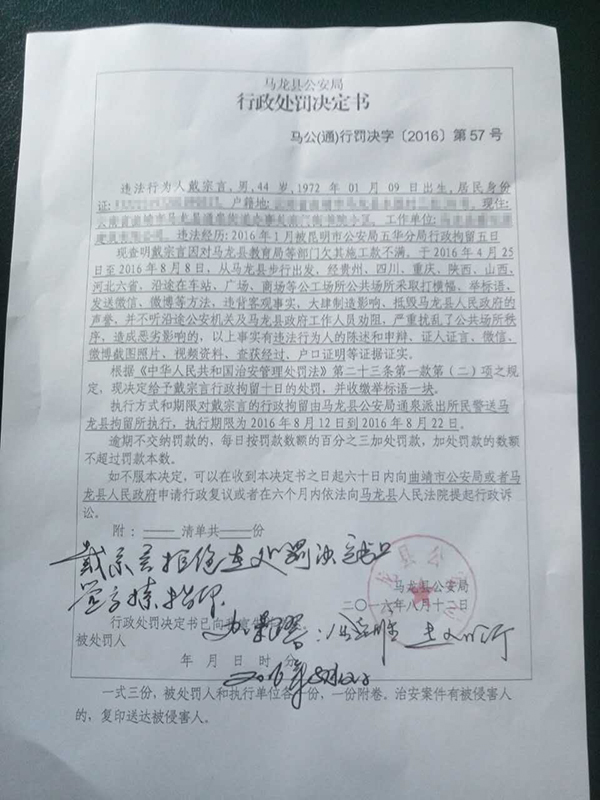 马龙县公安局
行政处罚决定书
马公(通)行罚决字〔2016〕第57号
违法行为人戴宗言,男,44岁,1972年01月09日出生,居民身份
证: 户籍地: 现住:
工作单位:
违法经历:2016年1月被昆明市公安局五华分局行政拘留五日
现查明戴宗言因对马龙县教育局等部门欠其施工款不满。于2016年4月25
日至2016年8月8日,从马龙县步行出发,经贵州、四川、重庆、陕西、山西、
河北六省,沿途在车站、广场、商场等公工场所公共场所采取打横幅、举标语、
发送微信、微博等方法,违背客观事实,大肆制造影响、抵毁马龙县人民政府的
声誉,并不听沿途公安机关及马龙县政府工作人员劝阻,严重扰乱了公共场所秩
序,造成恶劣影响的,以上事实有违法行为人的陈述和申辩、证人证言、微信、
微博截图照片、视频资料、查获经过、户口证明等证据证实。
根据《中华人民共和国治安管理处罚法》第二十三条第一款第(二)项之规
定,现决定给予戴宗言行政拘留十日的处罚,并收缴举标语一块。
执行方式和期限对戴宗言的行政拘留由马龙县公安局通泉派出所民警送马
龙县拘留所执行,执行期限为2016年8月12日到2016年8月22日。
逾期不交纳罚款的,每日按罚款数额的百分之三加处罚款,加处罚款的数额
不超过罚款本数。
如不服本决定,可以在收到本决定书之日起六十日内向曲靖市公安局或者马
龙县人民政府申请行政复议或者在六个月内依法向马龙县人民法院提起行政诉
讼。
附: 清单共 份
戴宗言拒绝在处罚决定书
签字捺指印
马龙县公安局
二〇一六年八月十二日
行政处罚决定书已向
被处罚人
年 月 日 时 分
一式三份,被处罚人和执行单位各一份,一份附卷。治安案件有被侵害人
的,复印送达被侵害人。